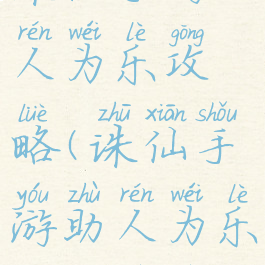 rén wéi lè gōng
人为乐攻
lüè zhū xiān shǒu
略(诛仙手
yóu zhù rén wéi lè
游助人为乐